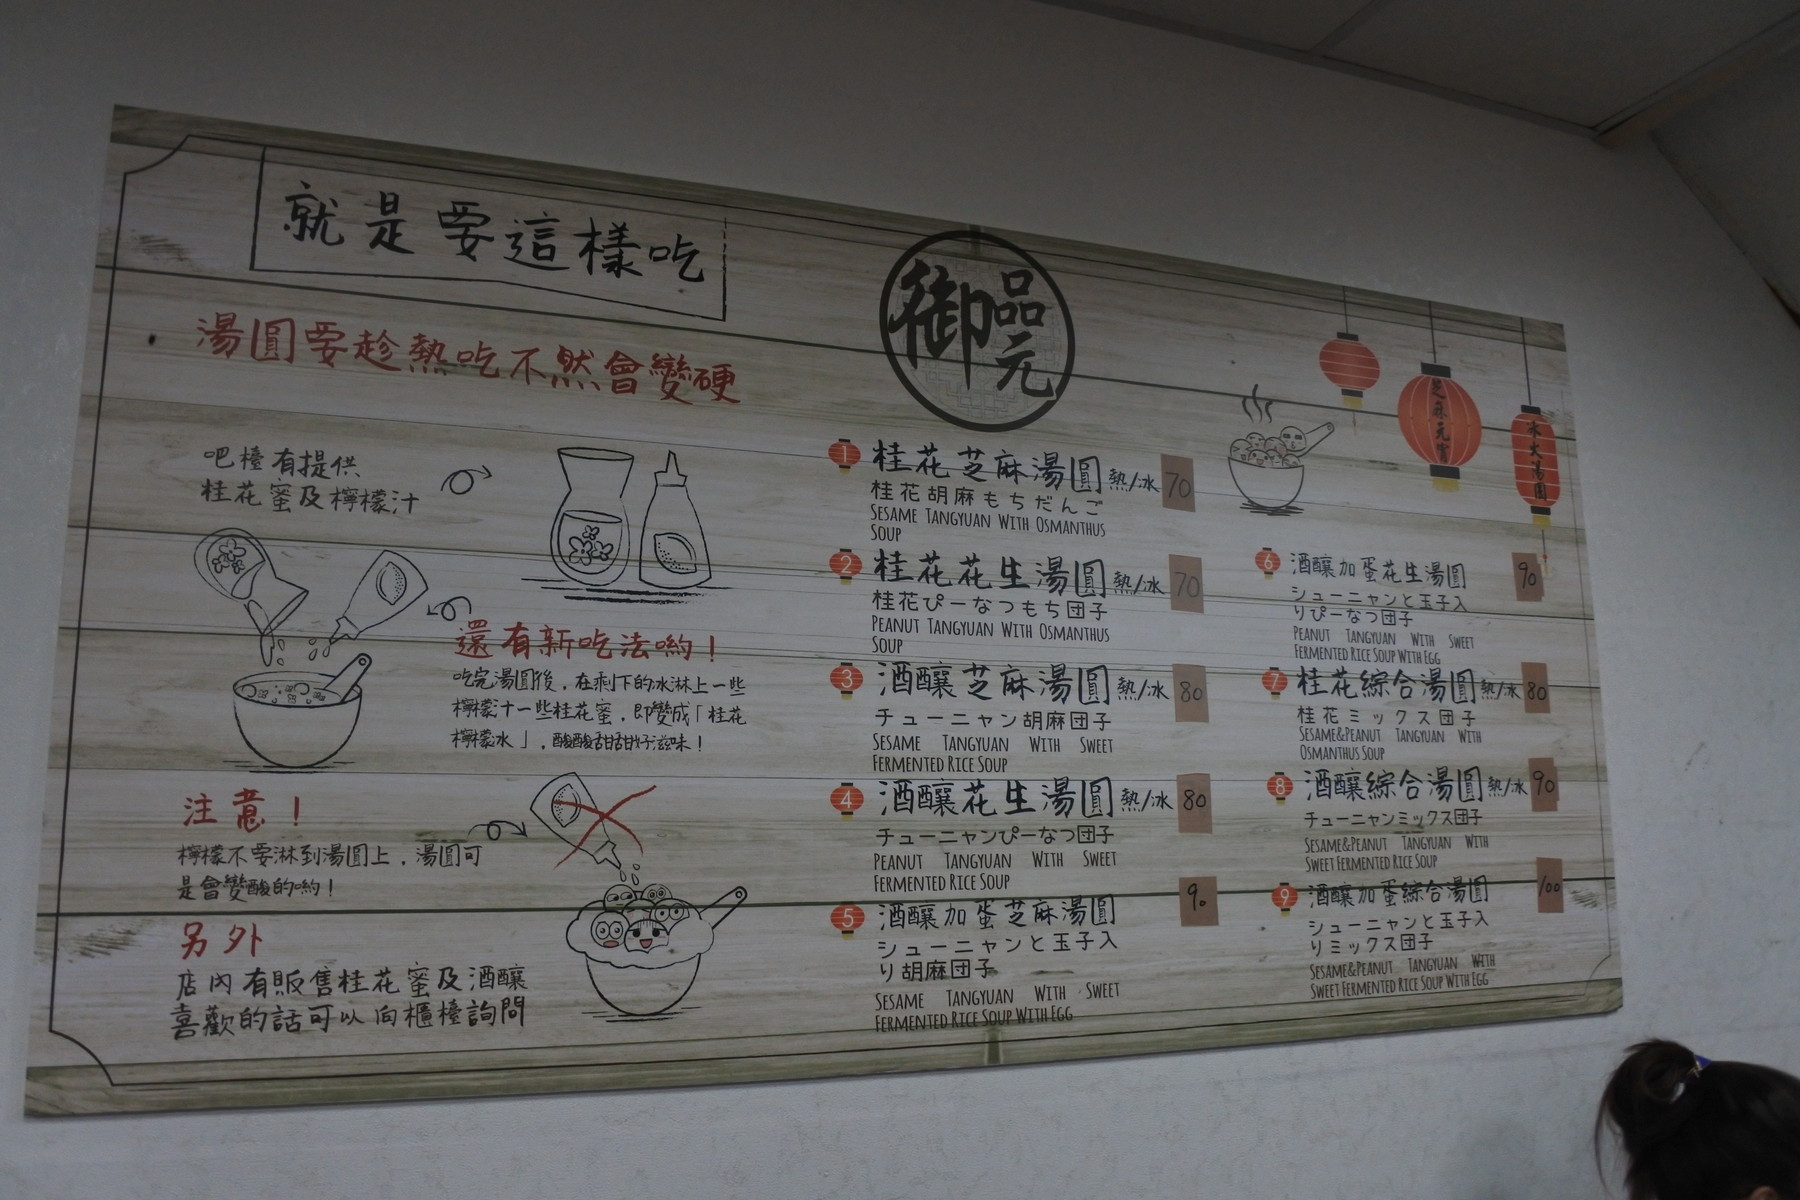 就是要這樣吃
湯圓要趁熱吃不然會變硬
吧檯有提供
桂花蜜及檸檬汁
還有新吃法喲！
吃完湯圓後，在剩下的冰淋上一些
檸檬汁一些桂花蜜，即變成「桂花
檸檬冰」，酸酸甜甜好滋味！
注意！
檸檬不要淋到湯圓上，湯圓可
是會變酸的喲！
另外
店內有販售桂花蜜及酒釀
喜歡的話可以向櫃檯詢問
御品元
1 桂花芝麻湯圓 熱/冰 70
桂花胡麻もちだんご
SESAME TANGYUAN WITH OSMANTHUS
SOUP
2 桂花花生湯圓 熱/冰 70
桂花ぴーなつもち団子
PEANUT TANGYUAN WITH OSMANTHUS
SOUP
3 酒釀芝麻湯圓 熱/冰 80
チューニャン胡麻団子
SESAME TANGYUAN WITH SWEET
FERMENTED RICE SOUP
4 酒釀花生湯圓 熱/冰 80
チューニャンぴーなつ団子
PEANUT TANGYUAN WITH SWEET
FERMENTED RICE SOUP
5 酒釀加蛋芝麻湯圓 90
シューニャンと玉子入
り胡麻団子
SESAME TANGYUAN WITH SWEET
FERMENTED RICE SOUP WITH EGG
芝麻元宵
冰火湯圓
6 酒釀加蛋花生湯圓 90
シューニャンと玉子入
りぴーなつ団子
PEANUT TANGYUAN WITH SWEET
FERMENTED RICE SOUP WITH EGG
7 桂花綜合湯圓 熱/冰 80
桂花ミックス団子
SESAME&PEANUT TANGYUAN WITH
OSMANTHUS SOUP
8 酒釀綜合湯圓 熱/冰 90
チューニャンミックス団子
SESAME&PEANUT TANGYUAN WITH
SWEET FERMENTED RICE SOUP
9 酒釀加蛋綜合湯圓 100
シューニャンと玉子入
りミックス団子
SESAME&PEANUT TANGYUAN WITH
SWEET FERMENTED RICE SOUP WITH EGG